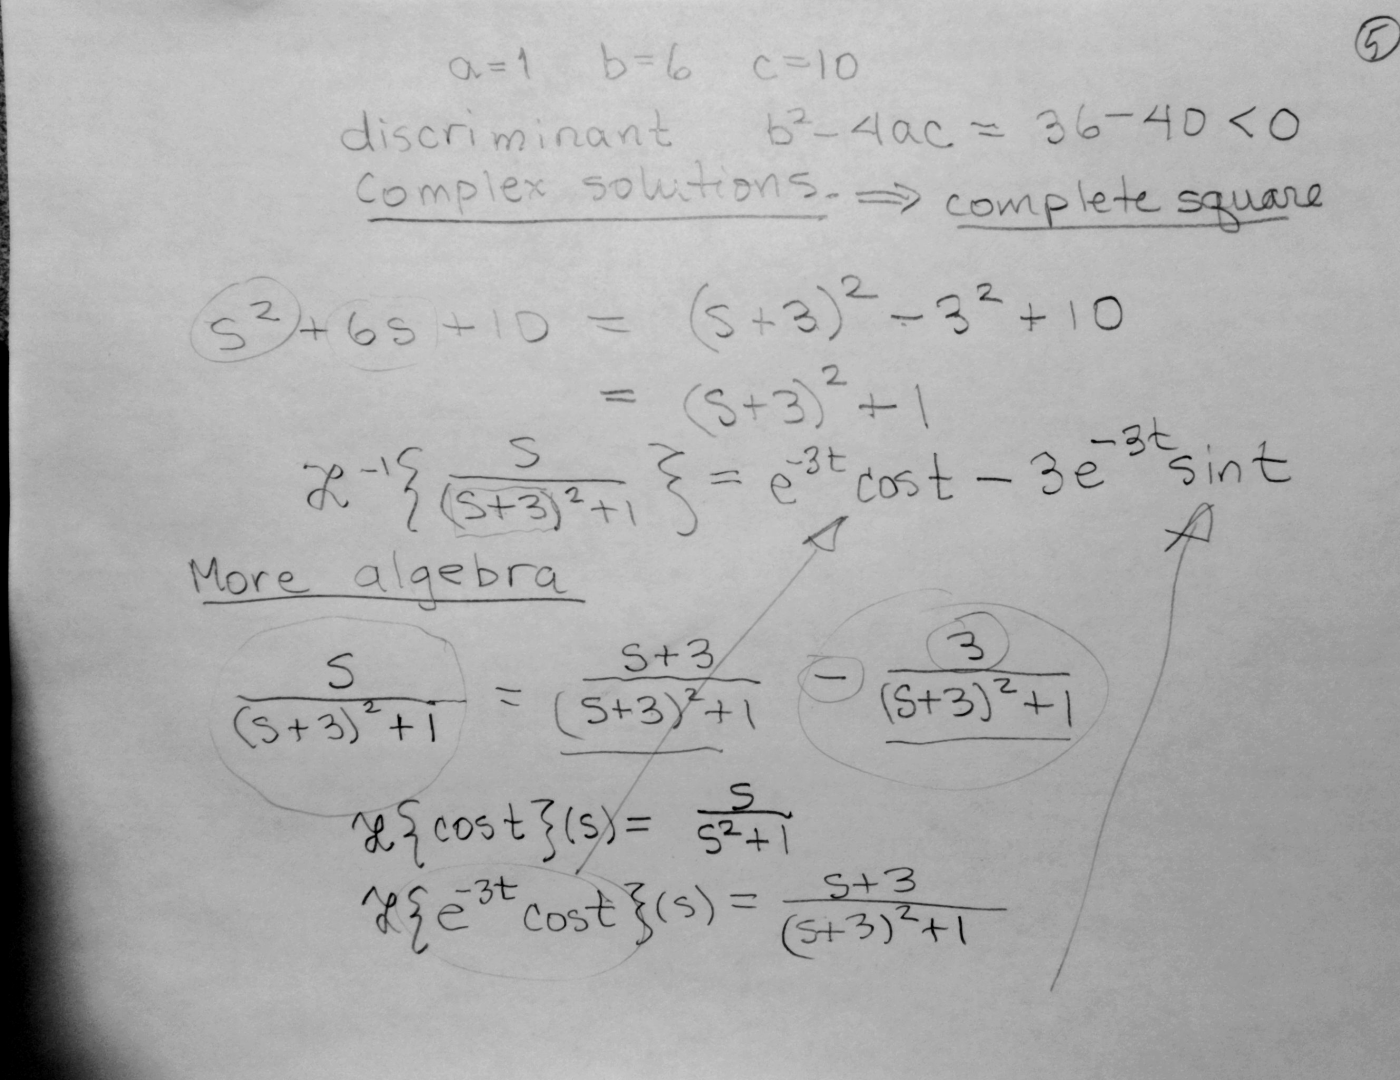 ⑤
a=1 b=6 c=10
discriminant b²-4ac = 36-40 < 0
Complex solutions. ⟹ complete square
s²+6s+10 = (s+3)² - 3² + 10
= (s+3)² + 1
ℒ⁻¹{ s/((s+3)²+1) } = e^(-3t) cos t - 3e^(-3t) sin t
More algebra
s/((s+3)²+1) = (s+3)/((s+3)²+1) - 3/((s+3)²+1)
ℒ{cos t}(s) = s/(s²+1)
ℒ{e^(-3t) cos t}(s) = (s+3)/((s+3)²+1)